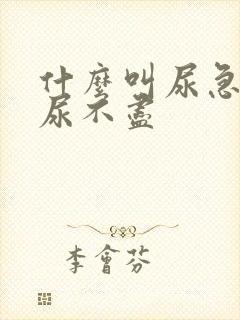 什麼叫尿急
尿不盡
李會芬